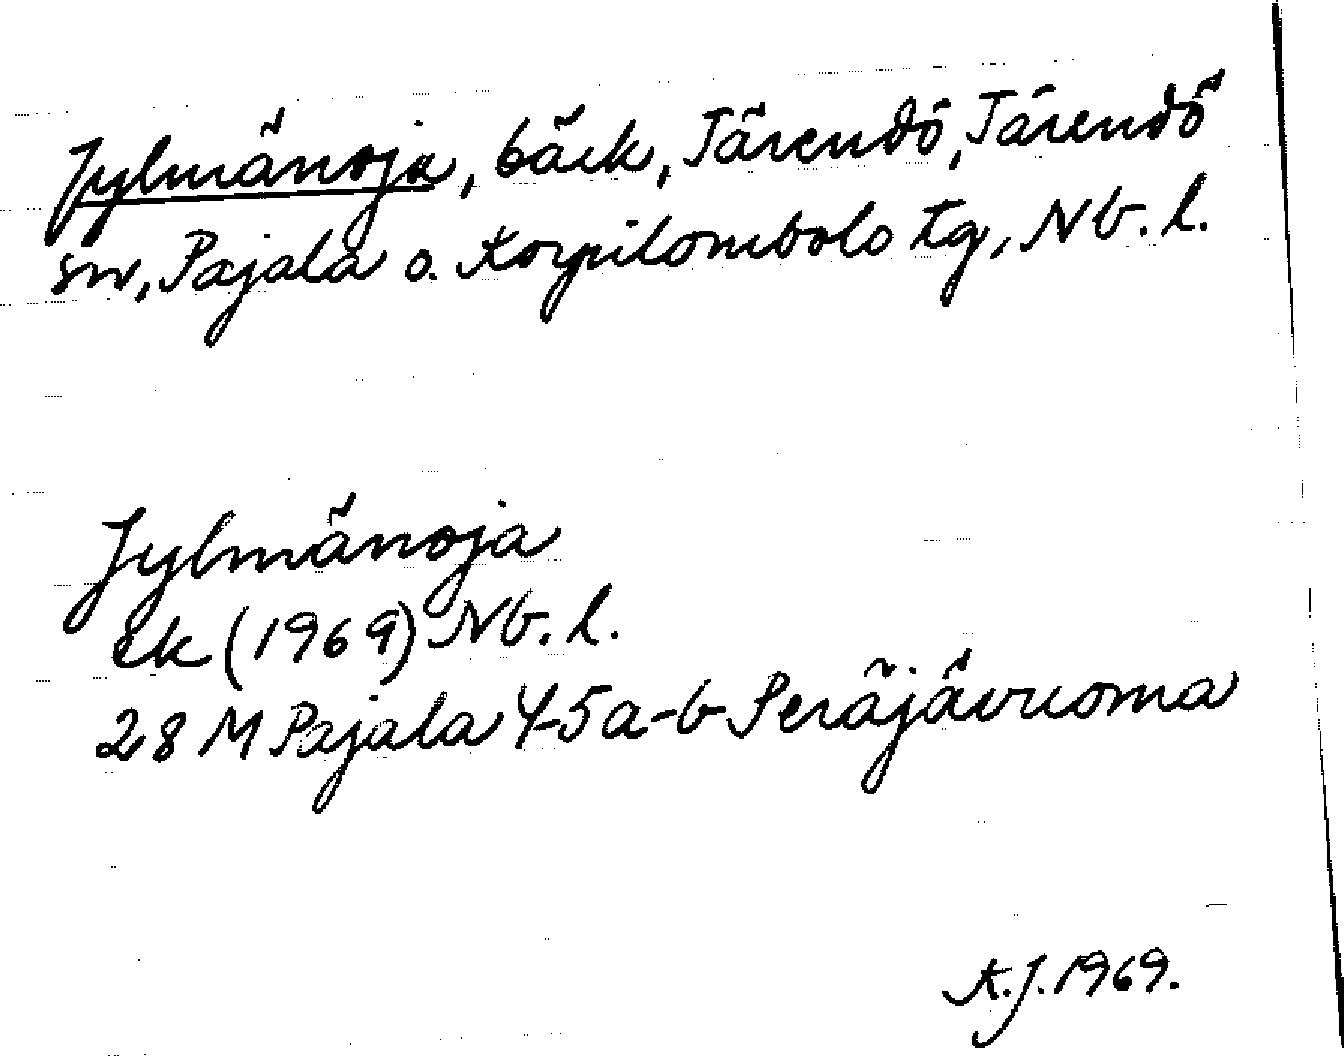 Jylmänoja, bäck, Tärendö, Tärendö
sn, Pajala o. Korpilombolo tg, Nb. l.
Jylmänoja
ek (1969) Nb. l.
28 M Pajala 4-5 a-b Peräjävuoma
K.J. 1969.